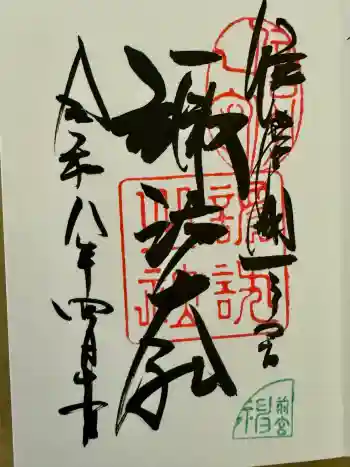 信濃國一之宮
諏訪大社
令和八年四月十日
諏訪大社
前宮